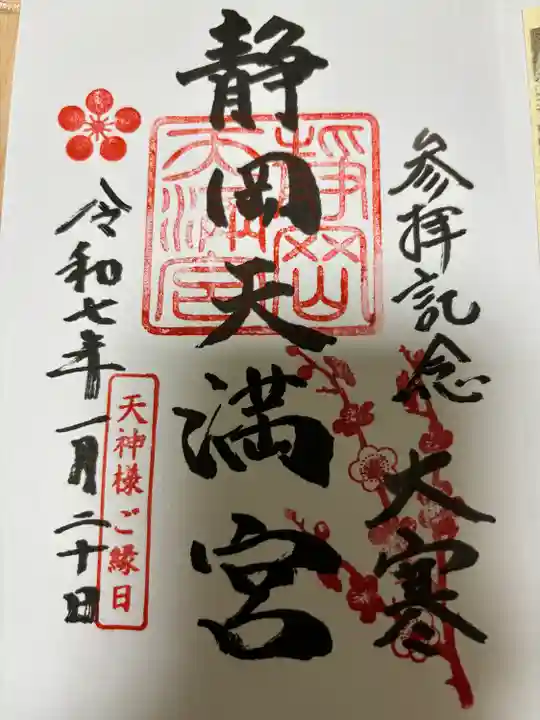 参拝記念
大寒
静岡天満宮
静岡
天満宮
天神様ご縁日
令和七年一月二十日